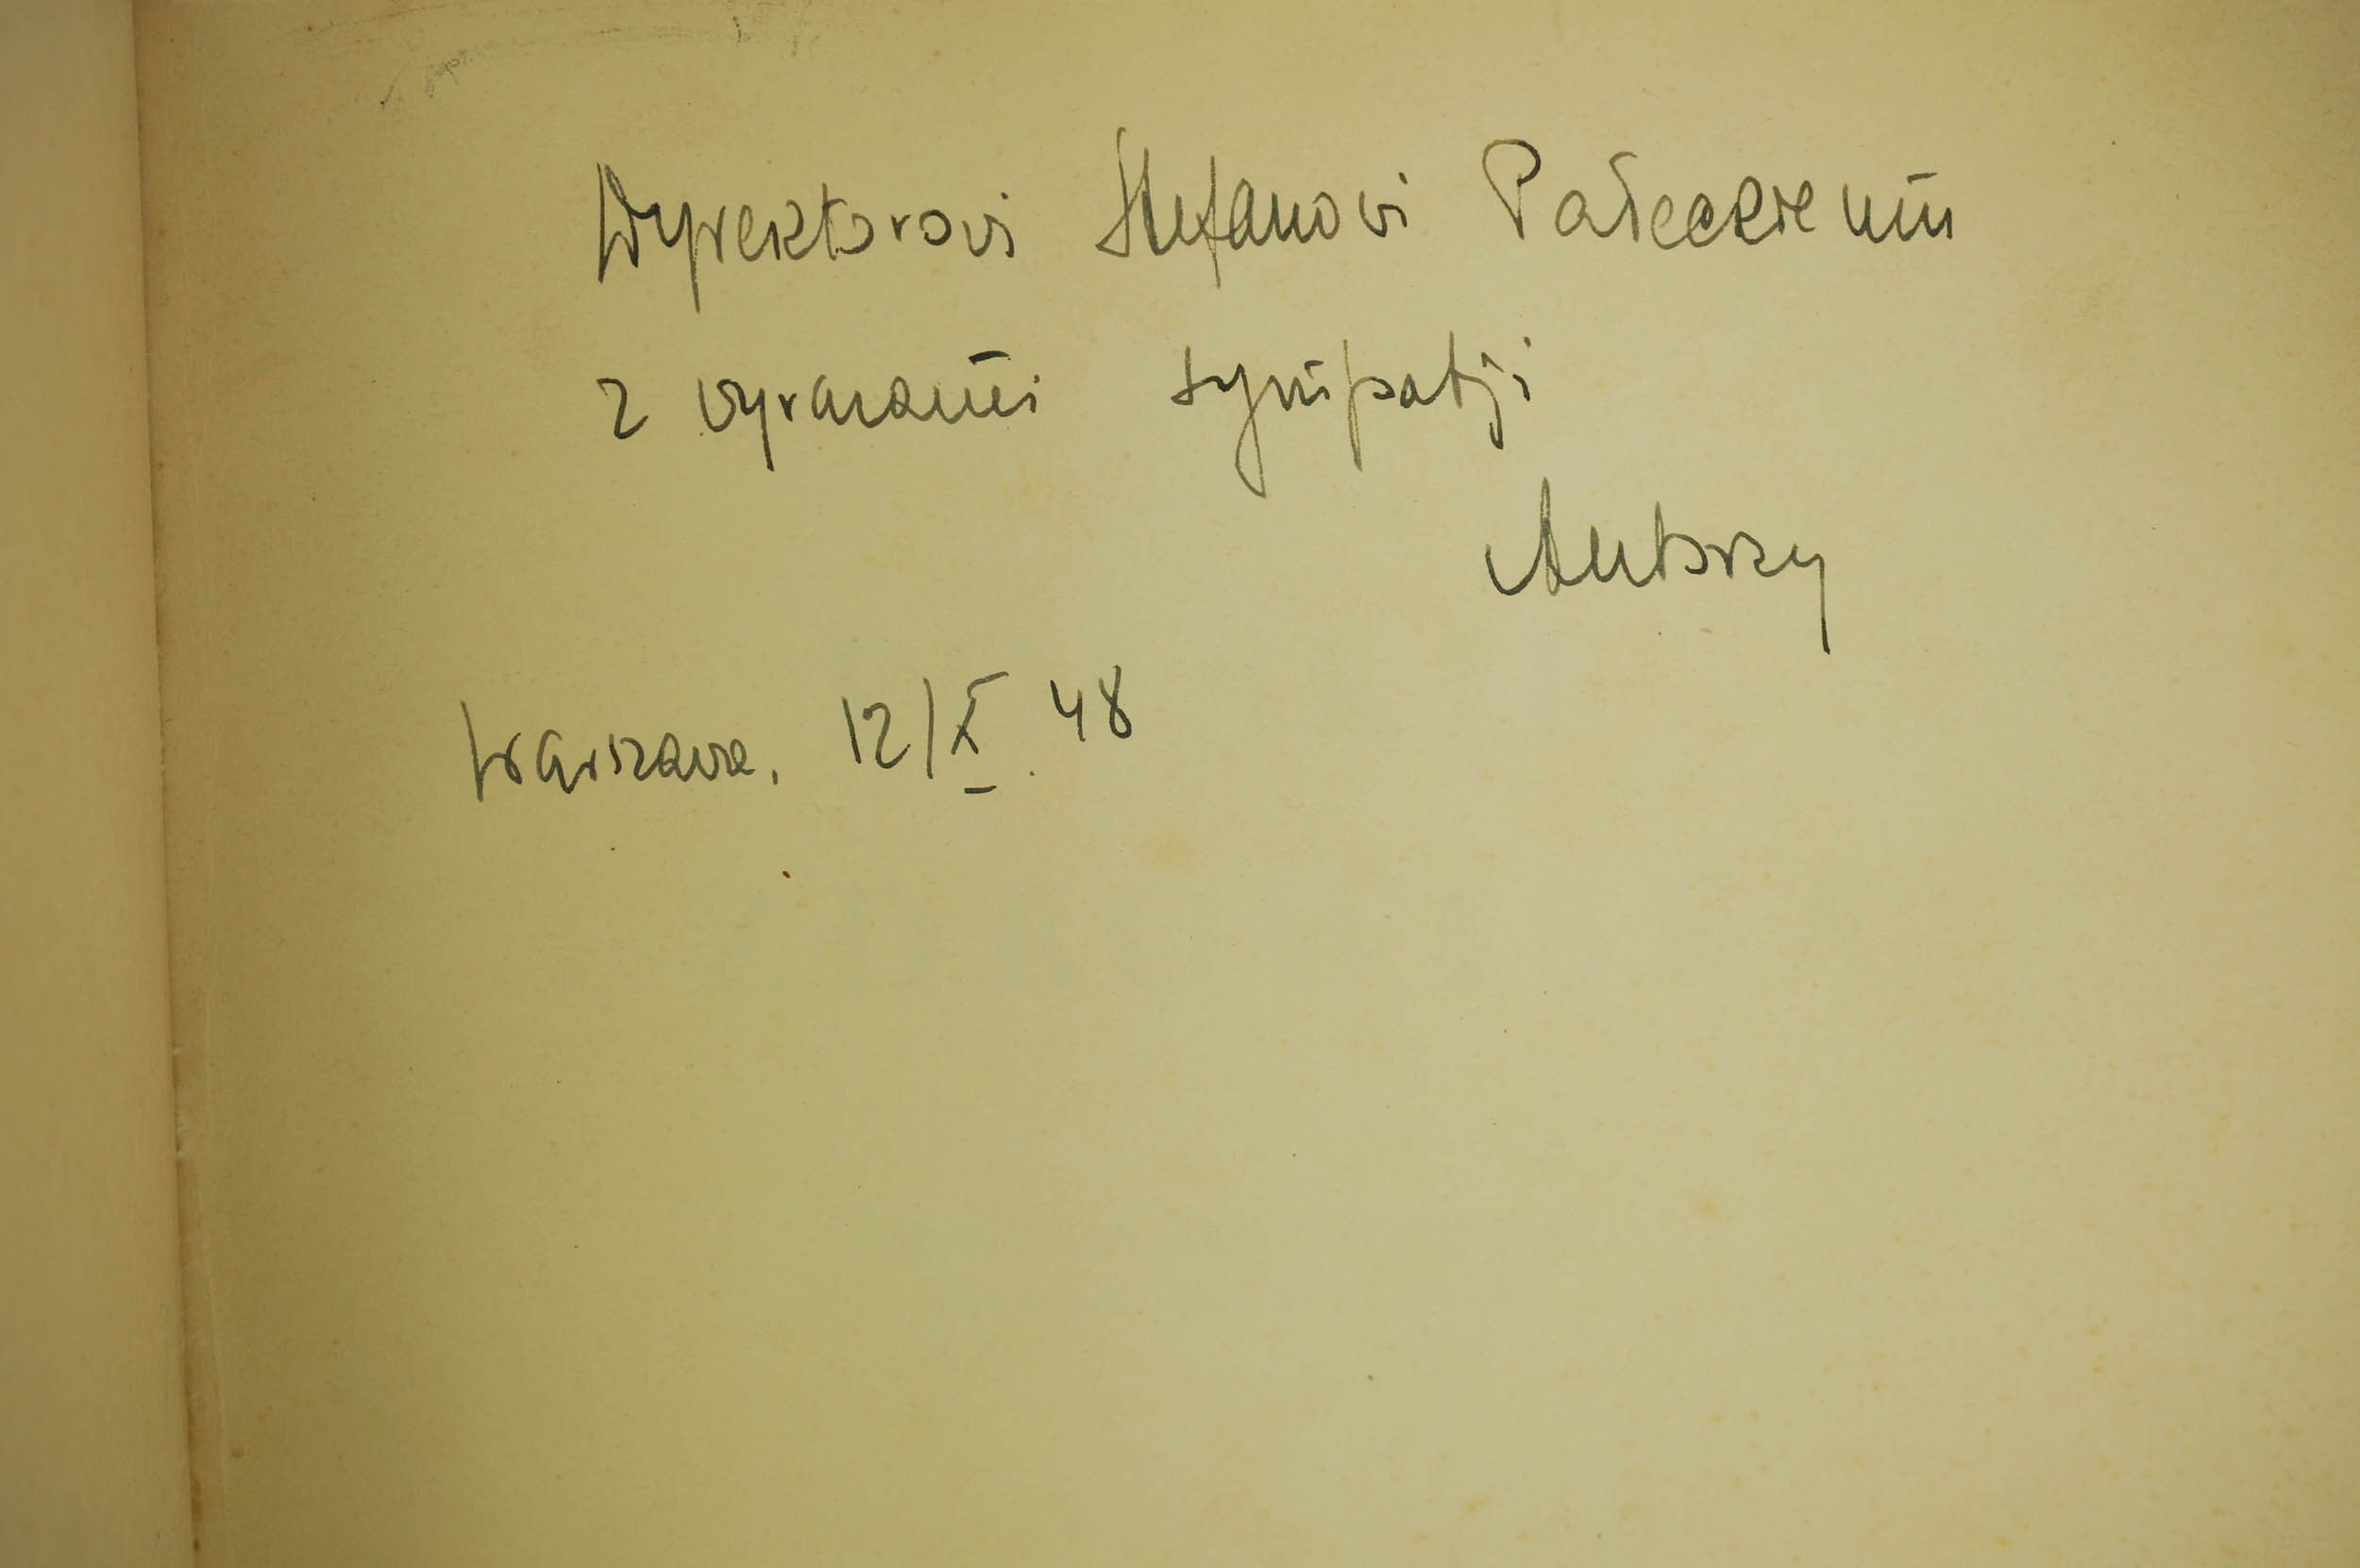 Dyrektorowi Stefanowi Pałeckiemu
z wyrazami sympatji
Autorzy
Warszawa, 12/X. 48